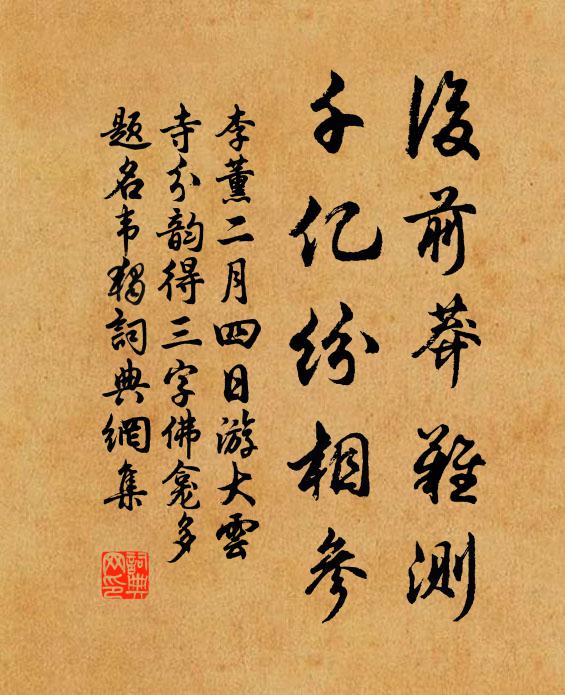 後前莽難測
千亿紛相參
李薰二月四日游大雲
寺分韵得三字佛龛多
題名韦獨詞典網集
詞典
网印